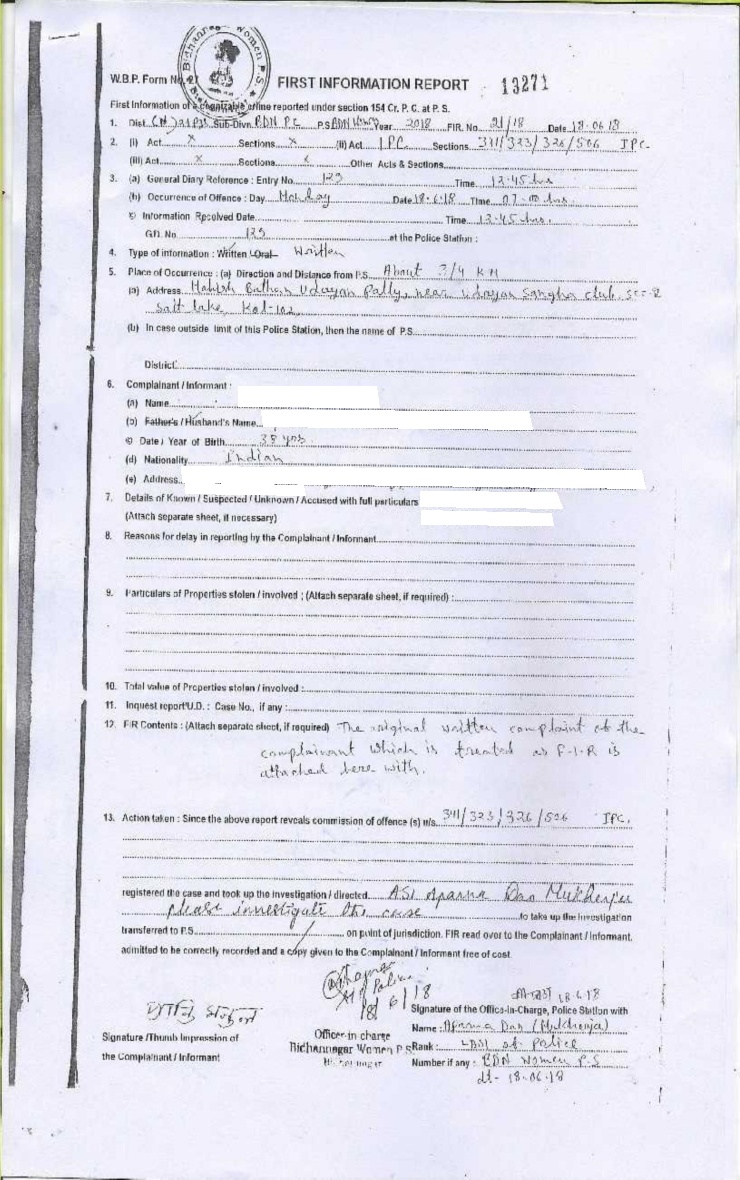 Bidhannagar Women P.S.
W.B.P. Form No. 27 FIRST INFORMATION REPORT 13271
First Information of a cognizable crime reported under section 154 Cr. P. C. at P. S.
1. Dist. (N) 24 Pgs Sub-Divn. BDN P.C P.S BDN Women Year 2018 FIR. No. 21/18 Date 18.06.18
2. (i) Act X Sections X (ii) Act IPC Sections 341/323/326/506 IPC.
(iii) Act X Sections x Other Acts & Sections
3. (a) General Diary Reference : Entry No. 129 Time 12.45 hrs
(b) Occurrence of Offence : Day Monday Date 18.6.18 Time 07.00 hrs.
© Information Received Date Time 12.45 hrs.
G.D. No. 129 at the Police Station :
4. Type of information : Written / Oral Written
5. Place of Occurrence : (a) Direction and Distance from P.S. About 3/4 KM
(a) Address Mahish Bathan Udayan Pally, near Udayan Sangha club, Sec-
Salt lake, Kol-102
(b) In case outside limit of this Police Station, then the name of P.S.
District
6. Complainant / Informant :
(a) Name
(b) Father's / Husband's Name
© Date / Year of Birth 38 yrs
(d) Nationality Indian
(e) Address
7. Details of Known / Suspected / Unknown / Accused with full particulars
(Attach separate sheet, if necessary)
8. Reasons for delay in reporting by the Complainant / Informant
9. Particulars of Properties stolen / involved ; (Attach separate sheet, if required) :
10. Total value of Properties stolen / involved :
11. Inquest report/U.D. : Case No., if any :
12. FIR Contents : (Attach separate sheet, if required) The original written complaint of the
complainant which is treated as F.I.R is
attached here with.
13. Action taken : Since the above report reveals commission of offence (s) u/s. 341/323/326/506 IPC.
registered the case and took up the investigation / directed ASI Aparna Das Mukherjee
please investigate the case to take up the investigation
transferred to P.S. on point of jurisdiction. FIR read over to the Complainant / Informant,
admitted to be correctly recorded and a copy given to the Complainant / Informant free of cost.
of Police
18/6/18
18.6.18
Signature of the Office-in-Charge, Police Station with
Signature /Thumb Impression of
the Complainant / Informant
Officer-in charge
Bidhannagar Women P.S.
Bidhannagar
Name : Aparna Das (Mukherjee)
Rank : of police
Number if any : BDN Women P.S
dt- 18.06.18